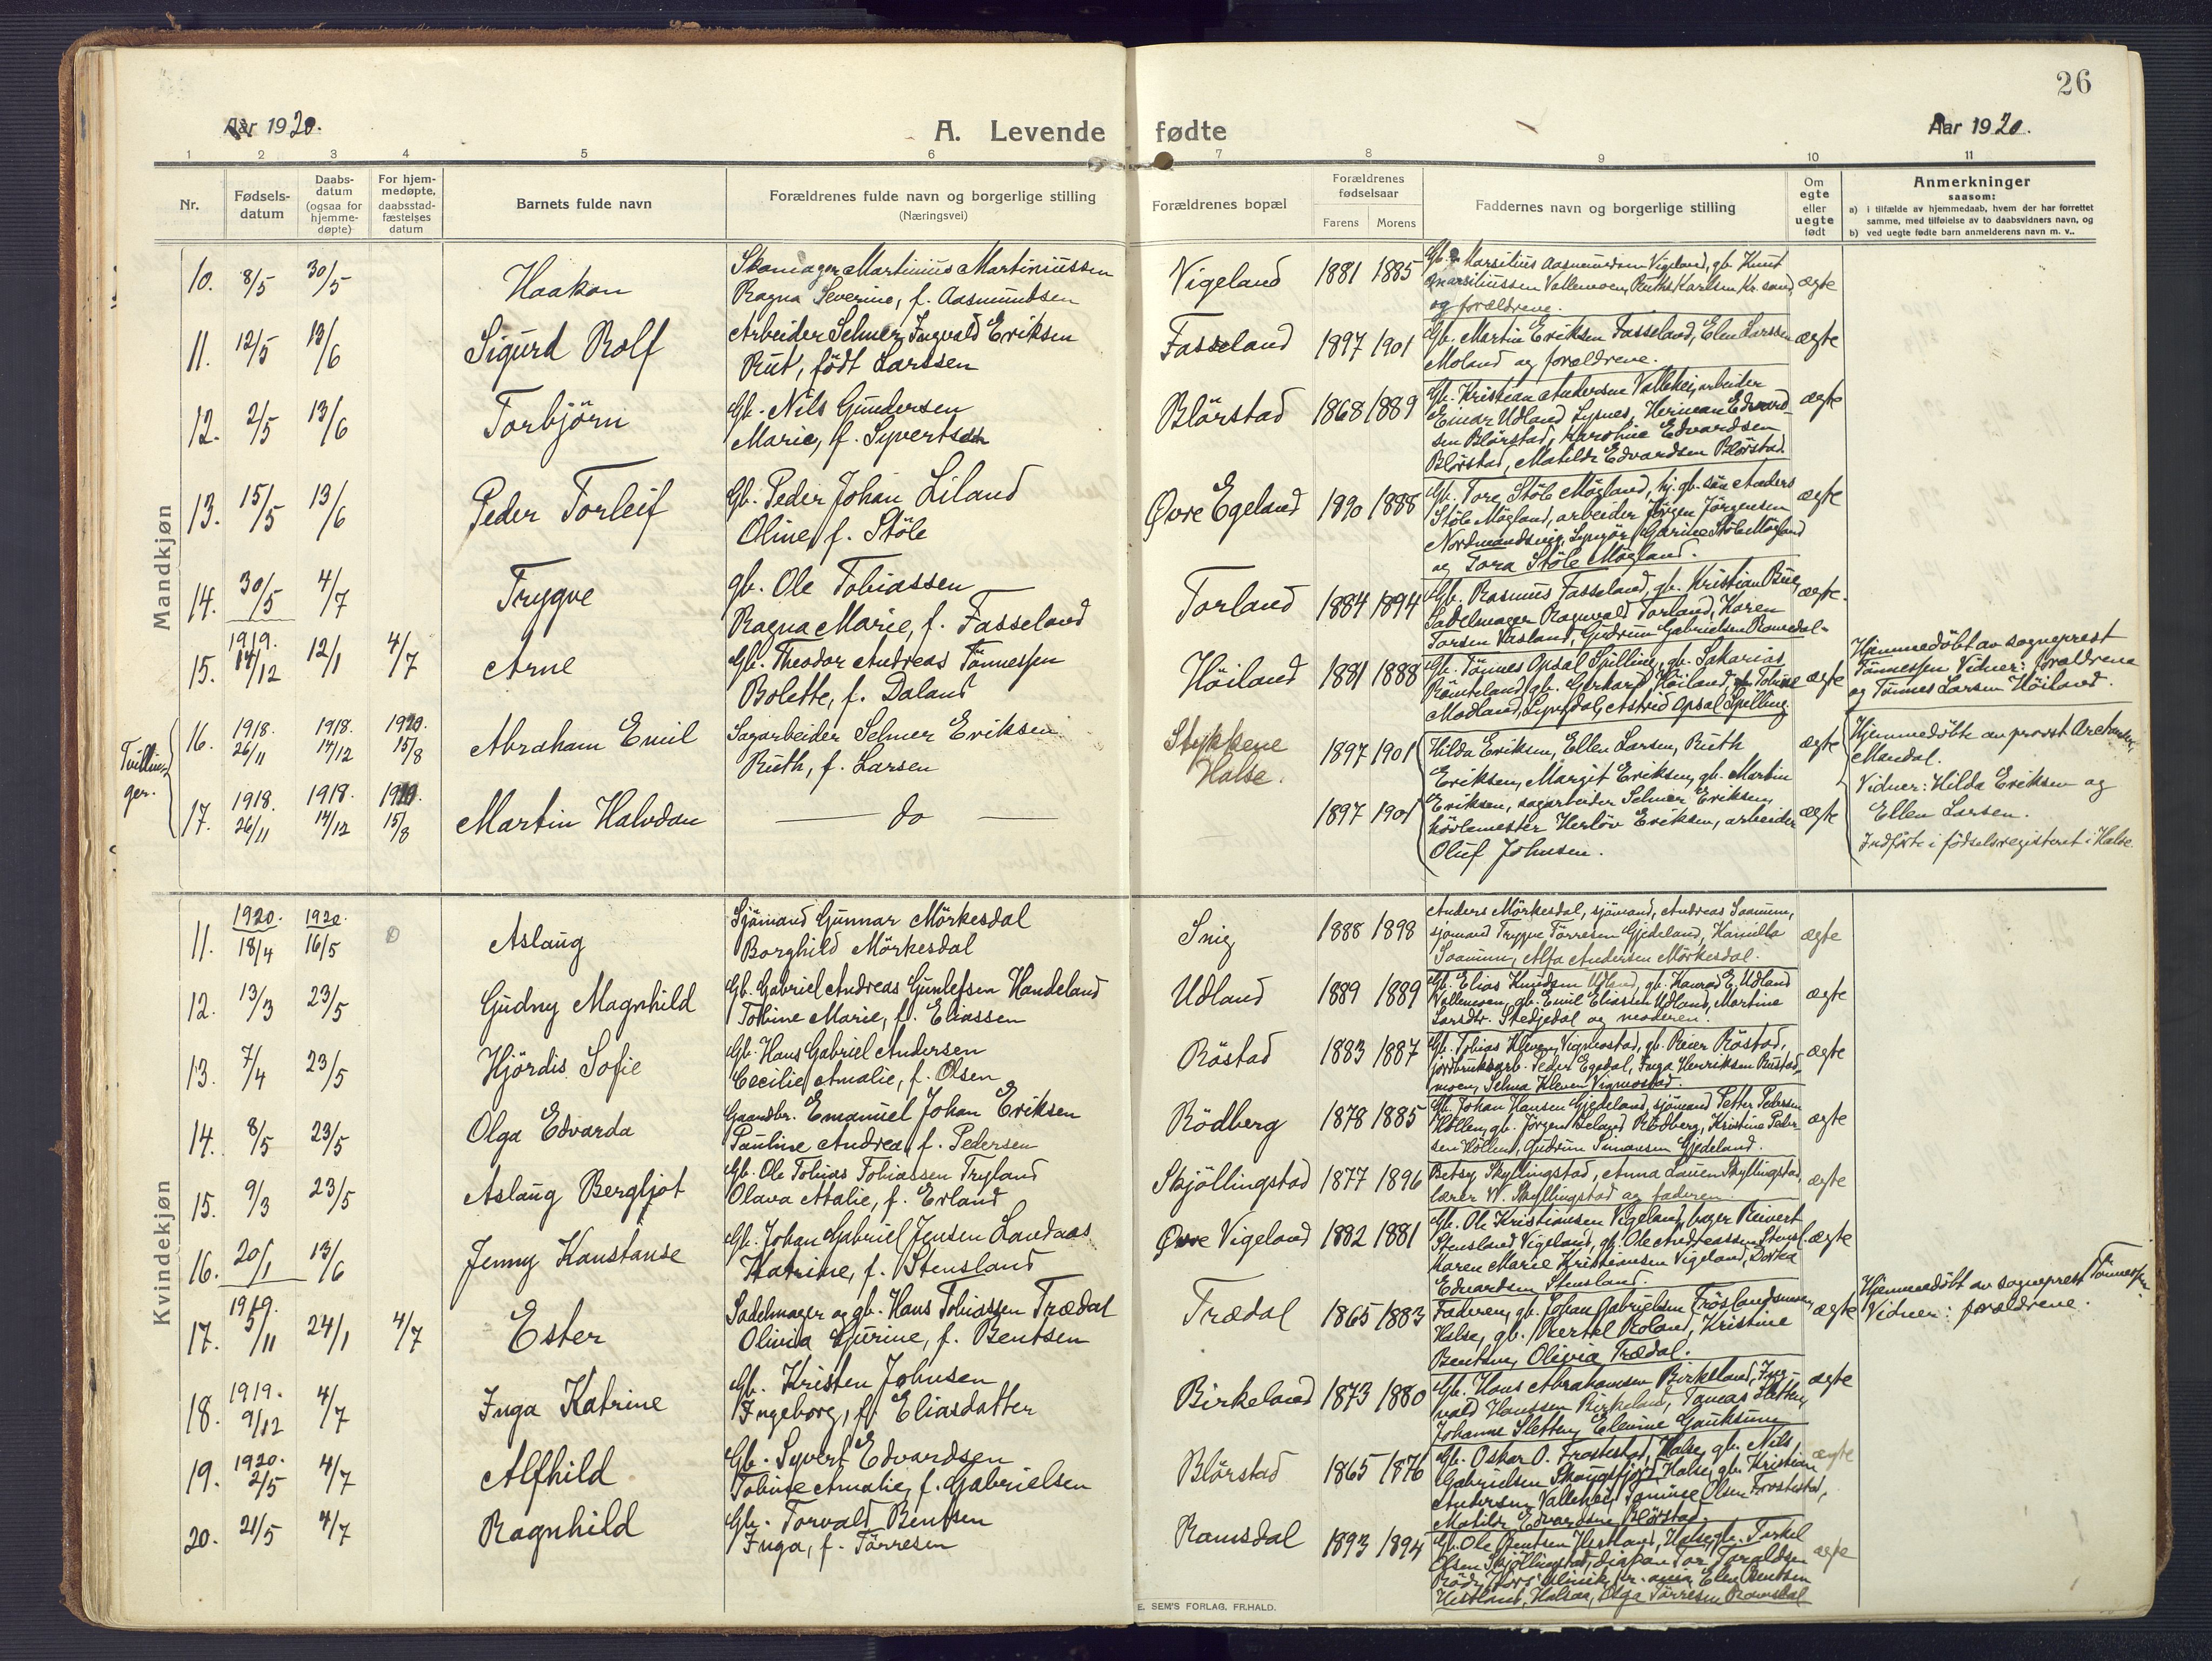 26
Aar 1920.
A. Levende fødte
Aar 1920.
1 2 3 4 5 6 7 8 9 10 11
Nr.
Fødselsdatum
Daabsdatum (ogsaa for hjemmedøpte)
For hjemmedøpte, daabsstadfæstelses datum
Barnets fulde navn
Forældrenes fulde navn og borgerlige stilling
(Næringsvei)
Forældrenes bopæl
Forældrenes fødselsaar
Farens Morens
Faddernes navn og borgerlige stilling
Om egte eller uegte født
Anmerkninger
saasom:
a) i tilfælde av hjemmedaab, hvem der har forrettet
samme, med tilføielse av to daabsvidners navn, og
b) ved uegte fødte barn anmelderens navn m. v..
Mandkjøn
10. 8/5 30/5 Haakon
Skomager Martinius Martiniussen
Ragna Severine, f. Aasmundsen
Vigeland 1881 1885
Gb. Marsilius Aasmundsen Vigeland, gb. Knut
Marsiliussen Vallemoen, Karlsen Kr.sand,
og forældrene.
ægte
11. 12/5 13/6 Sigurd Rolf
Arbeider Selmer Ingvald Eriksen
Rut, født Larssen
Fasseland 1897 1901
Gb. Martin Eriksen Fasseland, Elen Larssen
Moland og forældrene.
ægte
12. 2/5 13/6 Torbjörn
Gb. Nils Gundersen
Marie, f. Syvertsen
Blörstad 1868 1889
Gb. Kristian Andersen Vallehei, arbeider
Einar Udland Lysnes, Herman Edvard-
sen Blörstad, Karoline Edvardsen
Blörstad, Matilde Edvardsen Blörstad.
ægte
13. 15/5 13/6 Peder Torleif
Gb. Peder Johan Liland
Oline, f. Stöle
Øvre Egeland 1890 1888
Gb. Tore Stöle Mögland, hj. gb. sön Anders
Stöle Mögland, arbeider Jörgen Jörgensen
Nordmandsvig, Lyngör, Garine Stöle Mögland
og Tora Stöle Mögland.
ægte
14. 30/5 4/7 Trygve
gb. Ole Tobiassen
Ragna Marie, f. Fasseland
Torland 1884 1894
Gb. Rasmus Fasseland, gb. Kristian Bue,
Sadelmager Ragnvald Torland, Karen
Torsen Vasland, Gudrun Gabrielsen Ramsdal.
ægte.
15. 1919. 14/12 12/1 4/7 Arne
Gb. Theodor Andreas Tönnessen
Bolette, f. Daland
Höiland 1881 1888
Gb. Tönnes Opsal Spilling, gb. Sakarias
Römteland, gb. Gerhard Höiland, Tobine
Modland, Lyngdal, Astrid Opsal Spilling
ægte
Hjemmedöbt av sogneprest
Tönnessen Vidner: forældrene
og Tönnes Larsen Höiland.
Tvillinger.
16. 1918. 26/11 1918. 14/12 1920. 15/8 Abraham Emil
Sagarbeider Selmer Eriksen
Ruth, f. Larsen
Stykkene
Halse.
1897 1901
Hilda Eriksen, Ellen Larsen, Ruth
Eriksen, Margit Eriksen, gb. Martin
ægte
Hjemmedöbte av provst
Mandal.
Vidner: Hilda Eriksen og
17. 1918. 26/11 1918. 14/12 1920. 15/8 Martin Halvdan
do
1897 1901
Eriksen, sagarbeider Selmer Eriksen,
hövlemester Herlöv Eriksen, arbeider
Oluf Johnsen.
ægte
Ellen Larsen.
Indförte i födselsregisteret i Halse.
Kvindekjøn
11. 1920. 18/4 1920. 16/5 Aslaug
Sjömand Gunnar Mörkesdal
Borghild Mörkesdal
Snig 1888 1898
Anders Mörkesdal, sjömand, Andreas Soamm,
sjömand Trygve Törresen Gjedeland, Kamilla
Soamm, Alfa Andersen Mörkesdal.
ægte
12. 13/3 23/5 Gudny Magnhild
Gb. Gabriel Andreas Gunlefsen Handeland
Tobine Marie, f. Eliassen
Udland 1889 1889
Gb. Elias Knudsen Udland, gb. Konrad E. Udland
Vallemoen, gb. Emil Eliassen Udland, Martine
Larsdtr. Stedjedal og moderen.
ægte
13. 7/4 23/5 Hjördis Sofie
Gb. Hans Gabriel Andersen
Cecilie Amalie, f. Olsen
Röstad 1883 1887
Gb. Tobias Kleven Vigmostad, gb. Reier Röstad,
jordbruksarb. Peder Egedal, Inga Henriksen Rustad-
moen, Selma Kleven Vigmostad.
ægte
14. 8/5 23/5 Olga Edvarda
Gaardbr. Emanuel Johan Eriksen
Pauline Andrea, f. Pedersen
Rödberg 1878 1885
Gb. Johan Hansen Gjedeland, sjömand Petter Pedersen
Höllen, gb. Jörgen Leland Rödberg, Kristine Peder-
sen Höllen, Gudrun Simonsen Gjedeland.
ægte
15. 9/3 23/5 Aslaug Bergljot
Gb. Ole Tobias Tobiassen Trygland
Olava Atalie, f. Erland
Skjöllingstad 1877 1896
Betsy Skyllingstad, Anna Skyllingstad,
lærer W. Skyllingstad og faderen.
ægte
16. 20/1 13/6 Jenny Konstanse
Gb. Johan Gabriel Jensen Landaas
Katrine, f. Stensland
Øvre Vigeland 1882 1881
Gb. Ole Kristiansen Vigeland, bager Reivert
Stensland, Vigeland, gb. Ole Andreassen Stensl.
Karen Marie Kristiansen Vigeland, Dorka
Edvardsen Stensland.
ægte
17. 1919. 5/11 24/1 4/7 Ester
Sadelmager og gb. Hans Tobiassen Trædal
Olivia Gurine, f. Bentsen
Trædal 1865 1883
Faderen, gb. Johan Gabrielsen Tröslandsmoen,
Halse, gb. Bertel Roland, Kristine
Bentsen, Olivia Trædal.
ægte
Hjemmedöbt av sogneprest Tönnessen.
Vidner: forældrene.
18. 1919. 9/12 4/7 Inga Katrine
Gb. Kristen Johnsen
Ingeborg, f. Eliasdatter
Birkeland 1873 1880
Gb. Hans Abrahamsen Birkeland, Ing-
vald Hanssen Birkeland, Tomas Sletten,
Johanne Sletten, Elenine
ægte
19. 1920. 2/5 4/7 Alfhild
Gb. Syvert Edvardsen
Tobine Amalie, f. Gabrielsen
Blörstad 1865 1876
Gb. Oskar O. Frostestad, Halse, gb. Nils
Gabrielsen Skogsfjord, Halse, gb. Kristian
Andersen Vallehei, Tomine Olsen Frostestad,
Matilde Edvardsen Blörstad.
ægte
20. 21/5 4/7 Ragnhild
Gb. Torvald Bentsen
Inga, f. Törresen
Ramsdal 1893 1894
Gb. Ole Bentsen Hestland, Halse, gb. Torkel
Olsen Skjöllingstad, diakon Tor Taraldsen
Röd, klinik, Kr.ania, Elen Bentsen
Hestland, Halsaa, Olga Törresen Ramsdal
ægte
E. SEM'S FORLAG, FR.HALD.